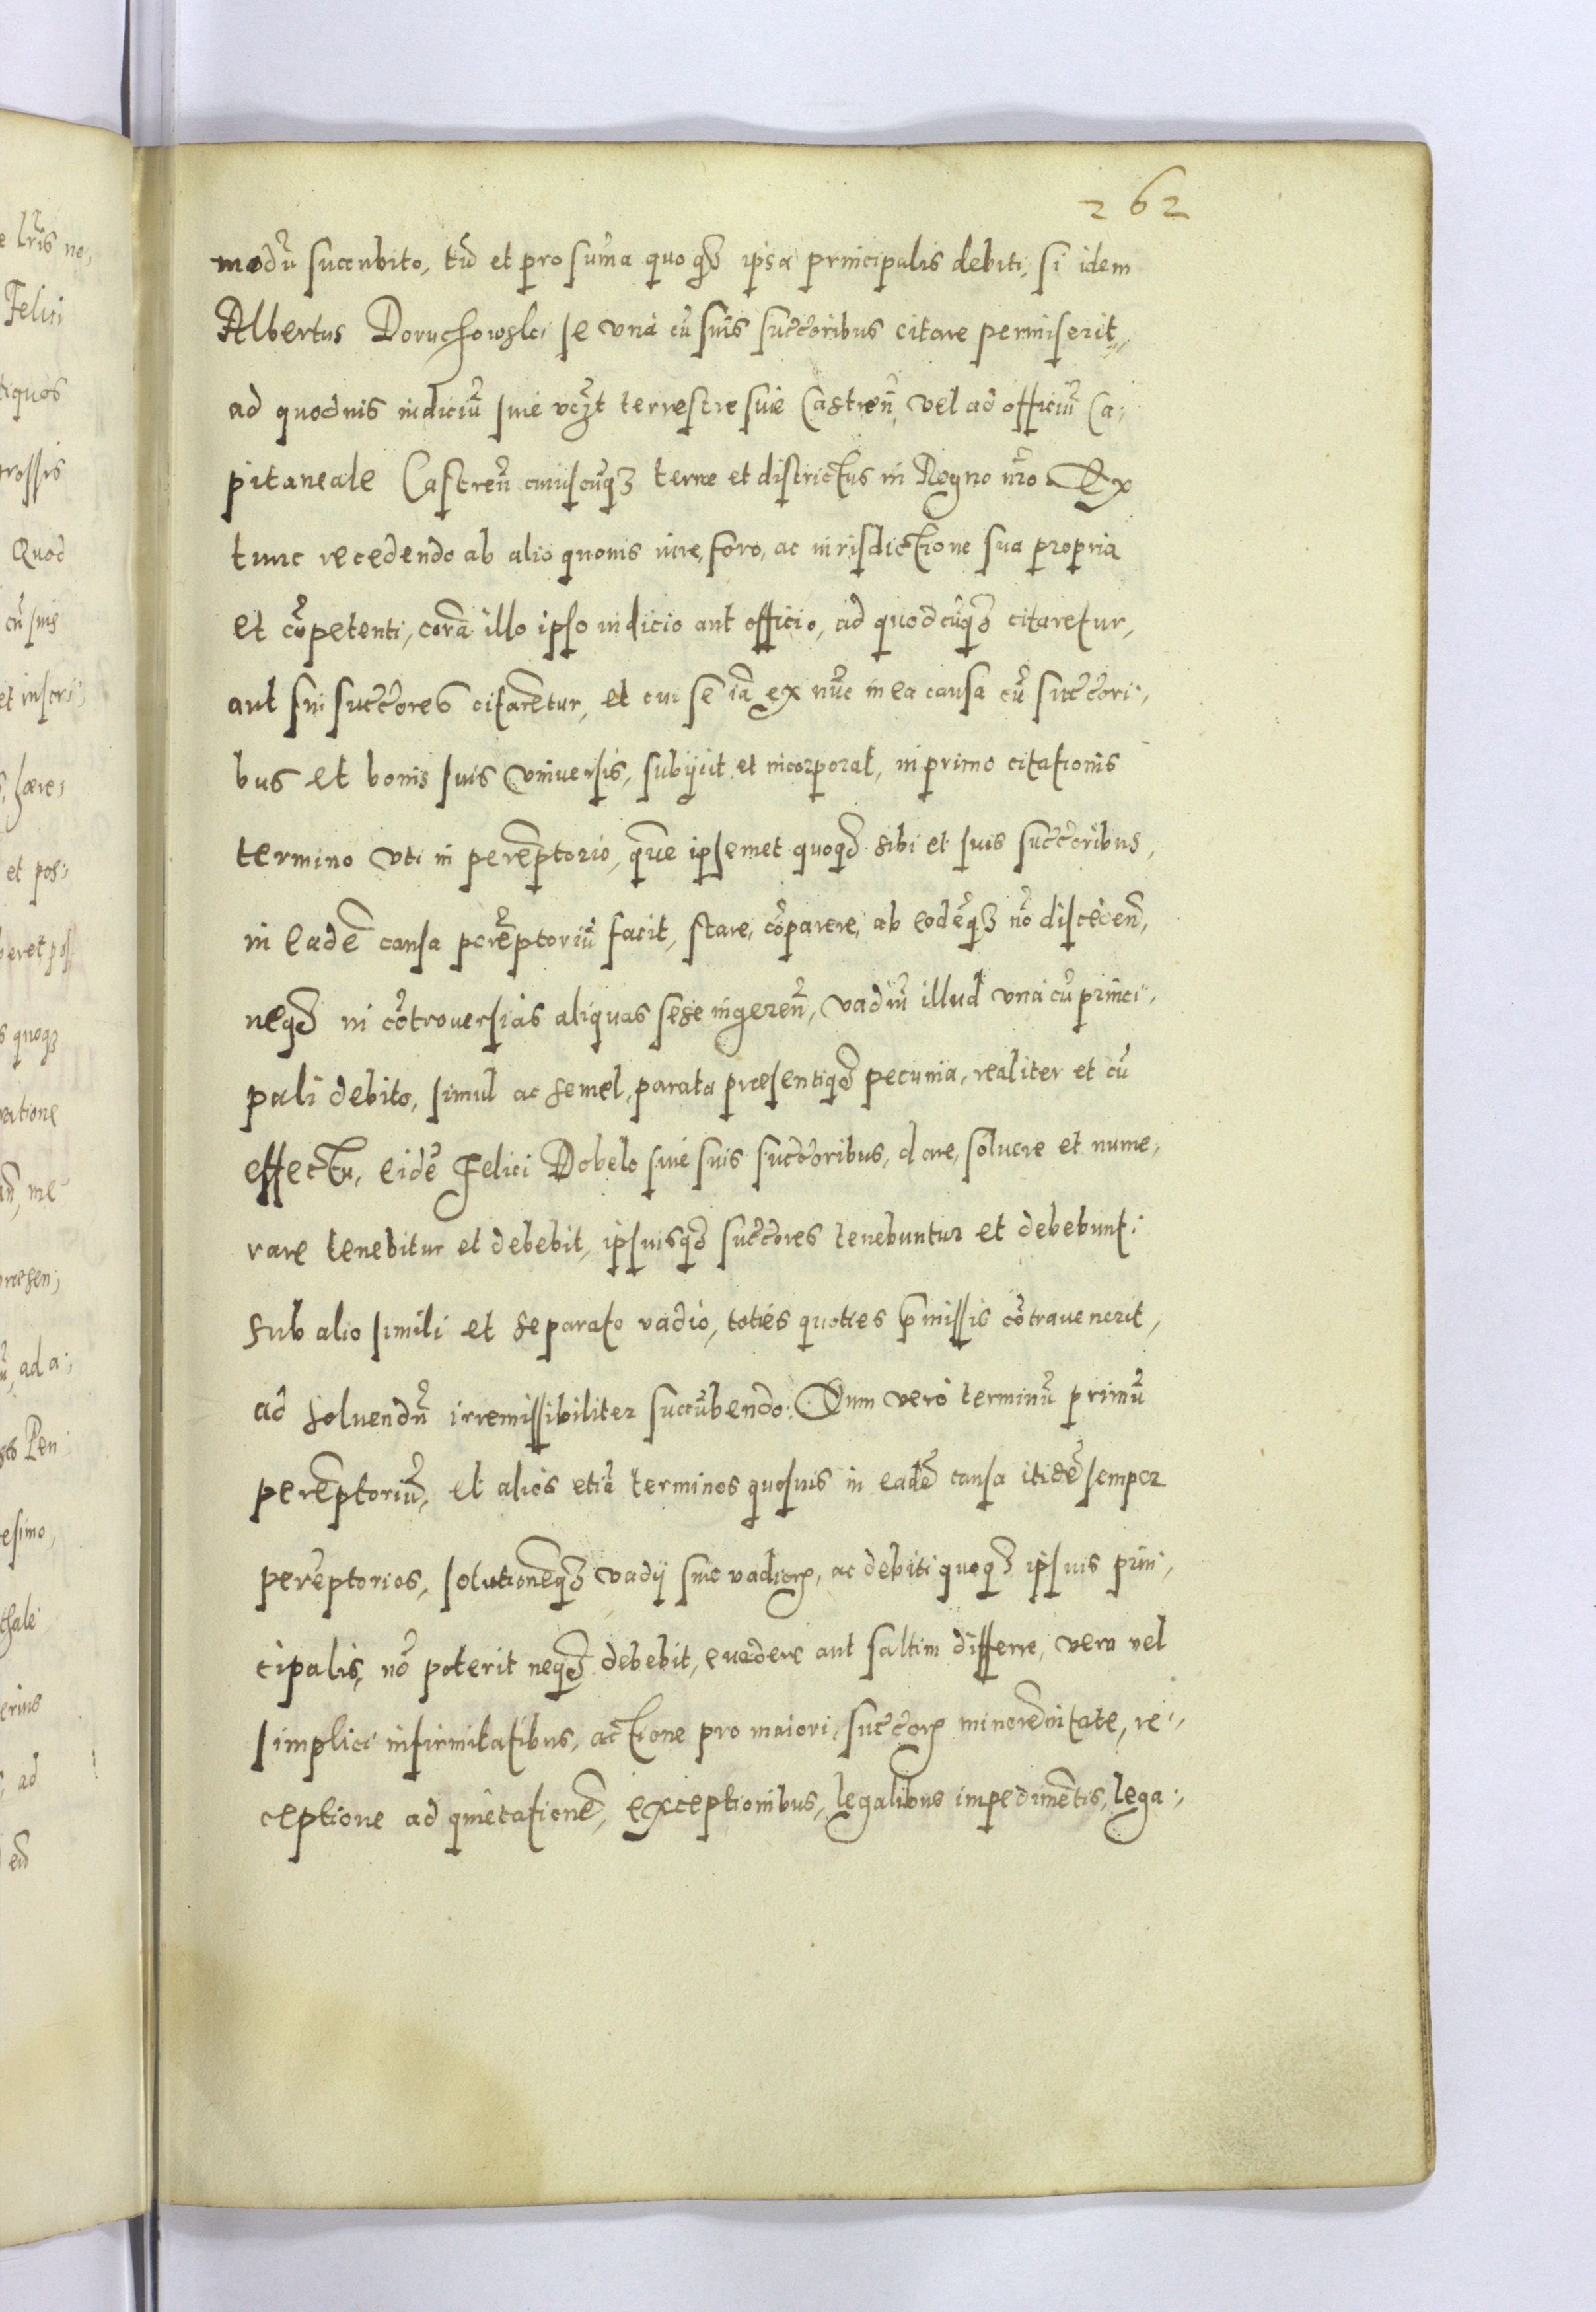 262
modũ succubito, tũ et pro sum̃a quoqȝ ipsa principalis debiti, si idem
Albertus Doruchowski se vná cũ suis succ̃toribus citare permiserit,
ad quoduis iudiciũ siue terrestre siue Castren̄, vel ad officiũ Ca⸗
pitaneale Castreñ cuiuscũqȝ terræ et districtus in Regno nr̃o Ex
tunc recedendo ab alio quouis iure, foro, ac iurisdictione sua propria
et cõpetenti, corã illo ipso iudicio aut officio, ad quodcũqȝ citaretur,
aut sui succ̃tores citarētur, et cui se iã ex nũc in ea causa cũ succ̃tori⸗
bus et bonis suis vniuersis, subijcit et incorporat, in primo citationis
termino vti in perēptorio, quē ipsemet quoqȝ sibi et suis succ̃toribus,
in eadē causa perēptoriũ facit, stare, cõparere, ab eodēqȝ nõ discedeñ,
neqȝ in cõtrouersiás aliquas sese ingereñ, vadiũ illud vná cũ princi⸗
pali debito, simul ac semel, parata præsentiqȝ pecunia, realiter et cũ
effectu, eidē Felici Dobelo siué suis succ̃toribus, dare, soluere et nume⸗
rare tenebitur et debebit, ipsiusqȝ succ̃tores tenebuntur et debebunt:
sub alio simili et separato vadio, totiés quoties p̄missis cõtrauenerit,
ad soluendũ irremissibiliter succũbendo: Dum veró terminũ primũ
perēptoriũ, et aliós etiã terminos quosuis in eadē causa itidē semper
perēptorios, solutionēqȝ vadij siue vadiorꝝ, ac debiti quoqȝ ipsius prin⸗
cipalis, nõ poterit neqȝ debebit, euadere aut saltim differre, vera vel
simplici infirmitatibus, actione pro maiori, succ̃torꝝ minorēnitate, re⸗
ceptione ad quietationē, exceptionibus, legalibus impedimētis, lega⸗